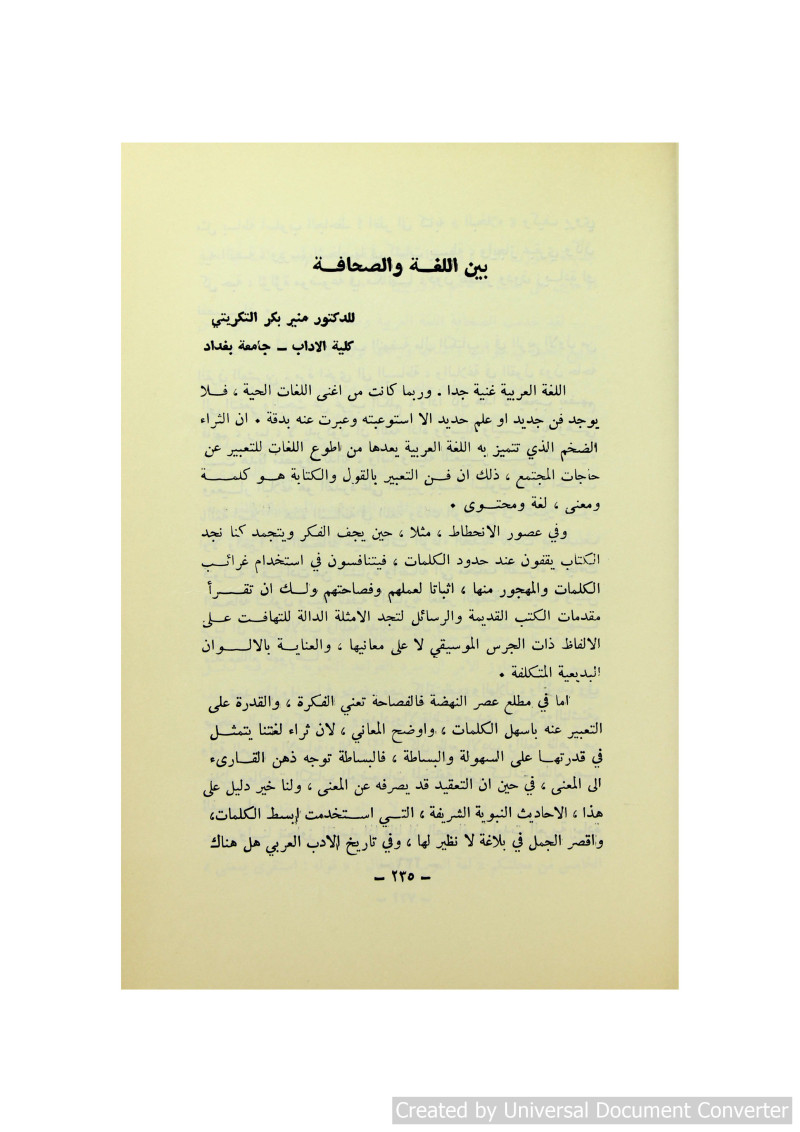 بين اللغة والصحافة
للدكتور منير بكر التكريتي
كلية الاداب – جامعة بغداد
اللغة العربية غنية جدا . وربما كانت من اغنى اللغات الحية ، فلا
يوجد فن جديد او علم حديد الا استوعبته وعبرت عنه بدقة . ان الثراء
الضخم الذي تتميز به اللغة العربية يعدها من اطوع اللغات للتعبير عن
حاجات المجتمع ، ذلك ان فن التعبير بالقول والكتابة هو كلمة
ومعنى ، لغة ومحتوى .
وفي عصور الانحطاط ، مثلا ، حين يجف الفكر ويتجمد كنا نجد
الكتاب يقفون عند حدود الكلمات ، فيتنافسون في استخدام غرائب
الكلمات والمهجور منها ، اثباتا لعملهم وفصاحتهم ولك ان تقرأ
مقدمات الكتب القديمة والرسائل لتجد الامثلة الدالة للتهافت على
الالفاظ ذات الجرس الموسيقي لا على معانيها ، والعناية بالالوان
البديعية المتكلفة .
اما في مطلع عصر النهضة فالفصاحة تعني الفكرة ، والقدرة على
التعبير عنه باسهل الكلمات ، واوضح المعاني ، لان ثراء لغتنا يتمثل
في قدرتها على السهولة والبساطة ، فالبساطة توجه ذهن القارىء
الى المعنى ، في حين ان التعقيد قد يصرفه عن المعنى ، ولنا خير دليل على
هذا ، الاحاديث النبوية الشريفة ، التي استخدمت ابسط الكلمات،
واقصر الجمل في بلاغة لا نظير لها ، وفي تاريخ الادب العربي هل هناك
– ٢٣٥ –
Created by Universal Document Converter